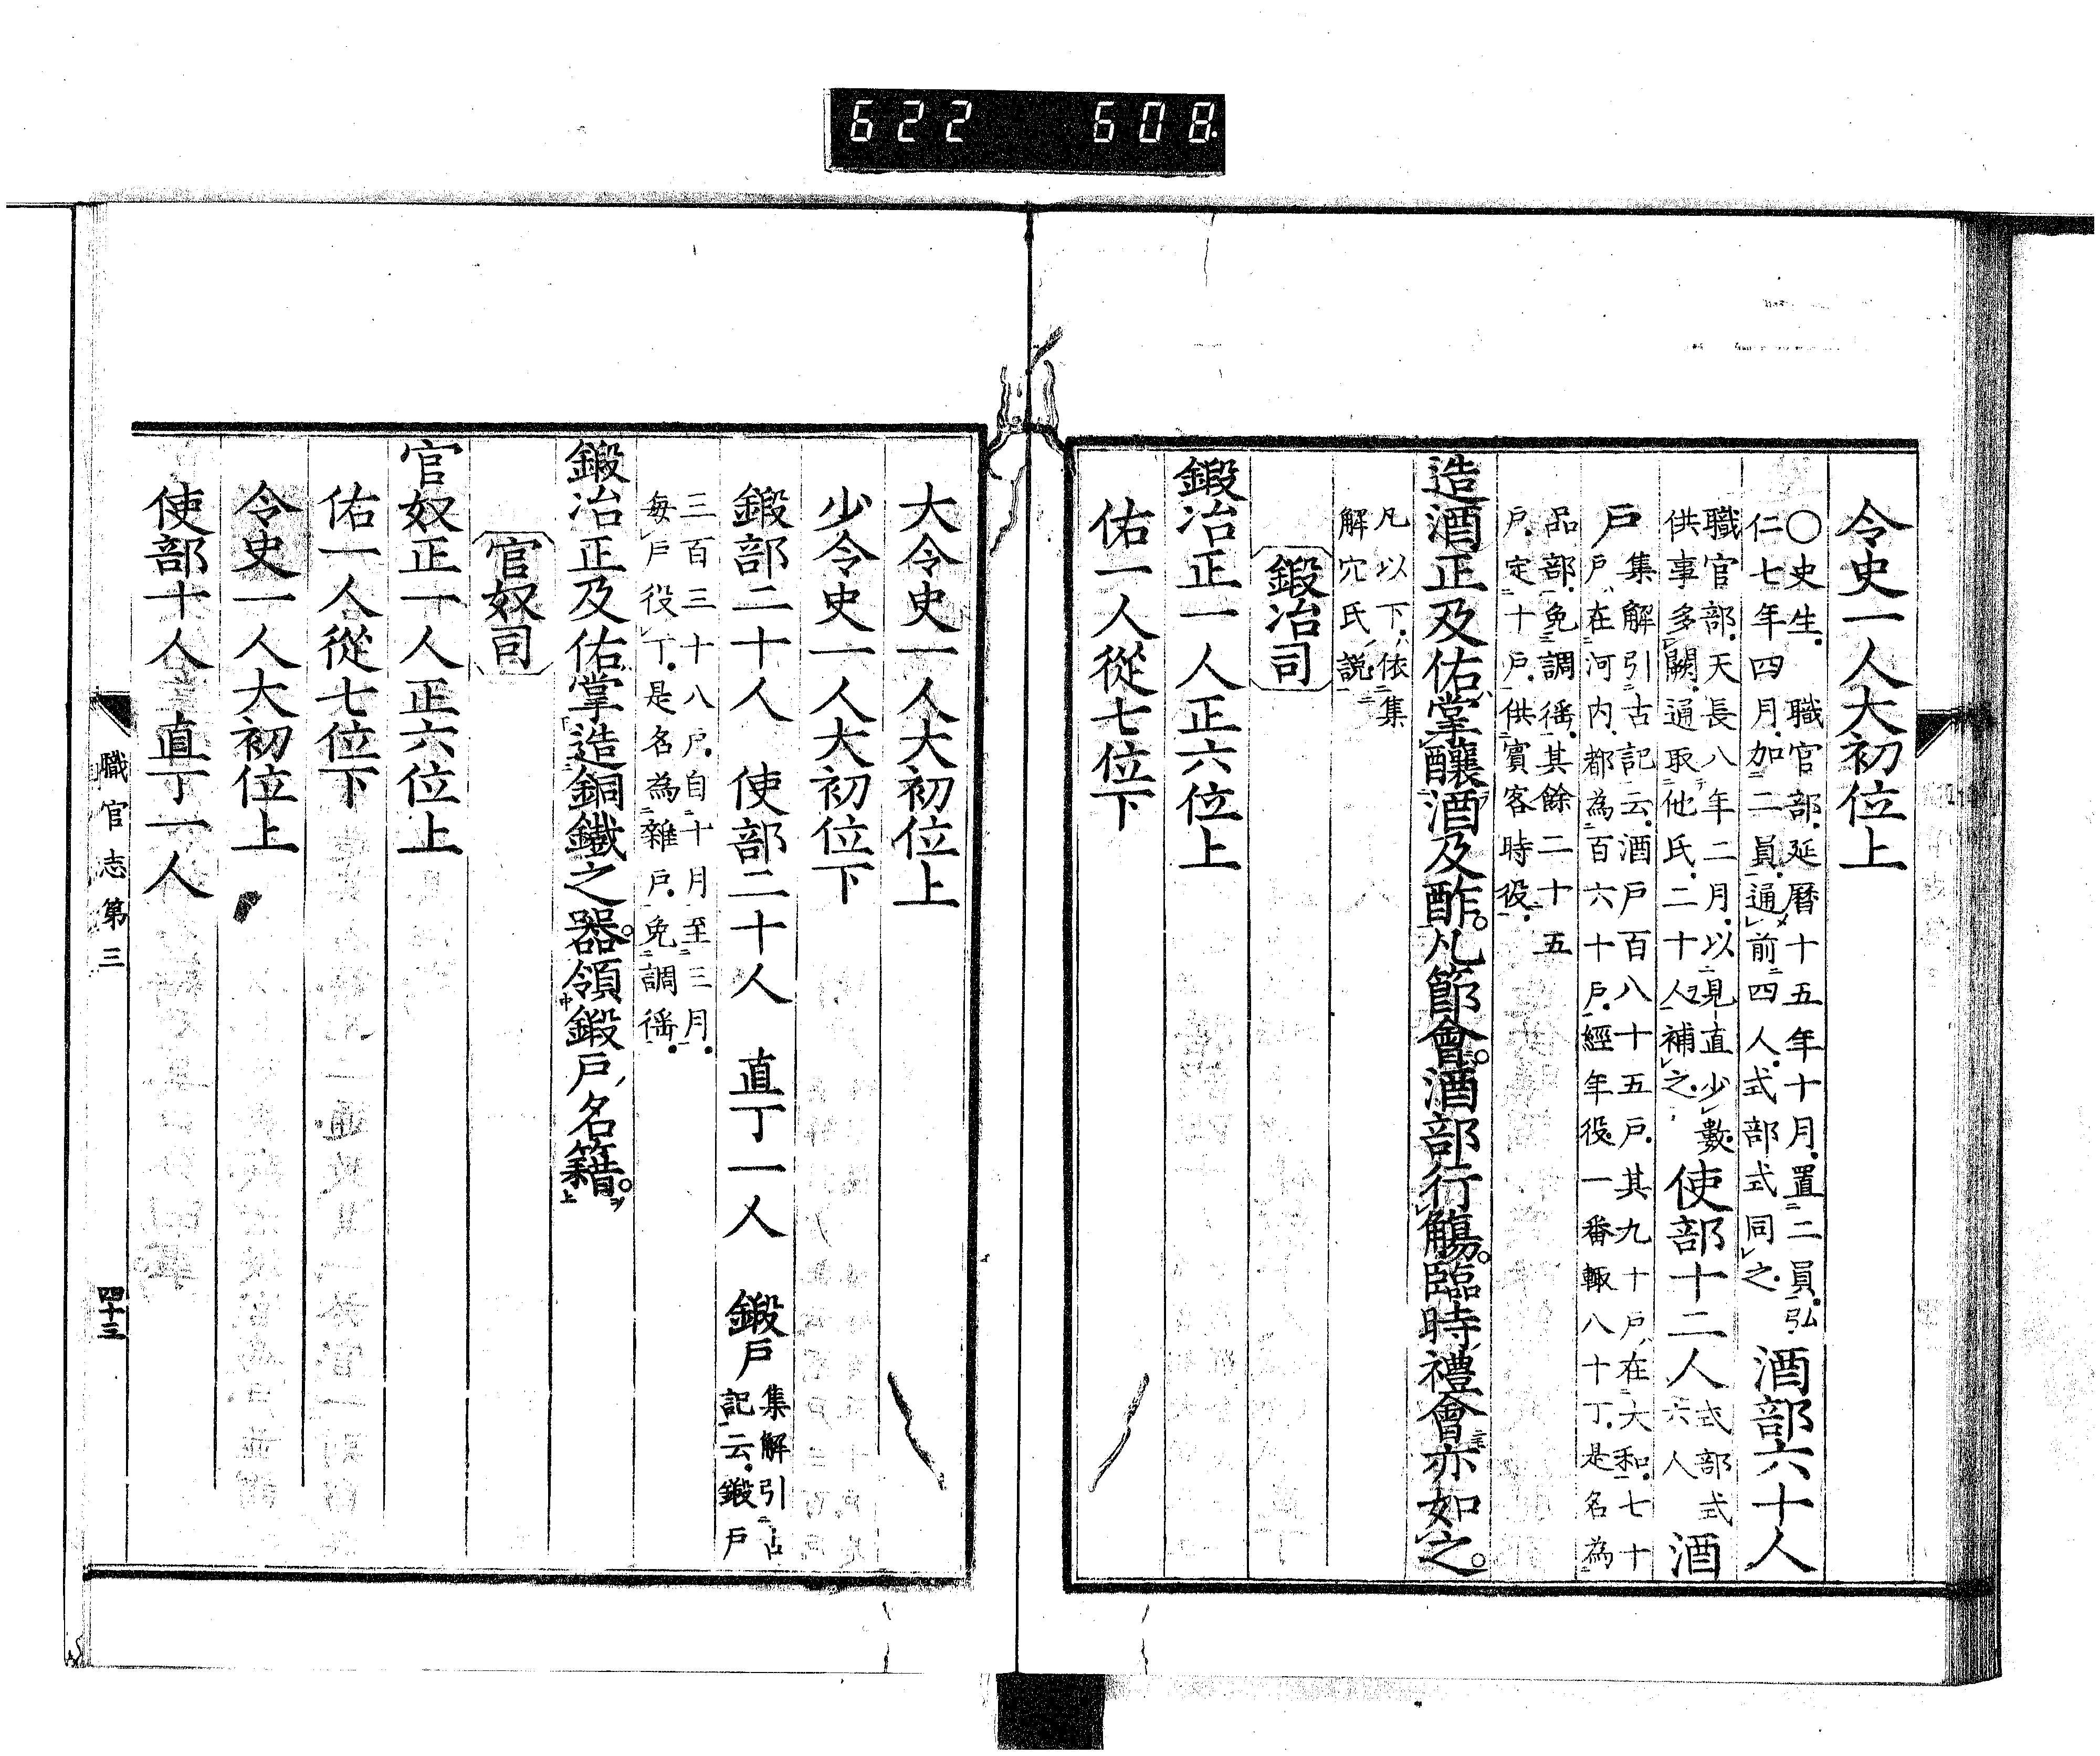 622 608
令史一人大初位上
○史生。職官部。延曆十五年十月。置二員。弘
仁七年四月。加二員。通前四人。式部式同之。
酒部六十人
職官部。天長八年二月。以見直少數。
供事多闕。通取他氏。二十人補之。
使部十二人
式部式
六人
酒
戶
集解引古記云。酒戶百八十五戶。其九十戶。在大和。七十
戶。在河內。都為百六十戶。經年役。一番輙八十丁。是名為
品部。免調徭。其餘二十五
戶。定十戶。供賓客時役。
造酒正及佑掌釀酒及酢。凡節會。酒部行觴。臨時禮會亦如之。
凡以下。依集
解穴氏說。
鍛冶司
鍛冶正一人正六位上
佑一人從七位下
大令史一人大初位上
少令史一人大初位下
鍛部二十人 使部二十人 直丁一人 鍛戶
集解引古
記云。鍛戶
三百三十八戶。自十月至三月。
每戶役丁。是名為雜戶。免調徭。
鍛冶正及佑掌造銅鐵之器。領鍛戶名籍。
官奴司
官奴正一人正六位上
佑一人從七位下
令史一人大初位上
使部十人 直丁一人
職官志第三
四十三